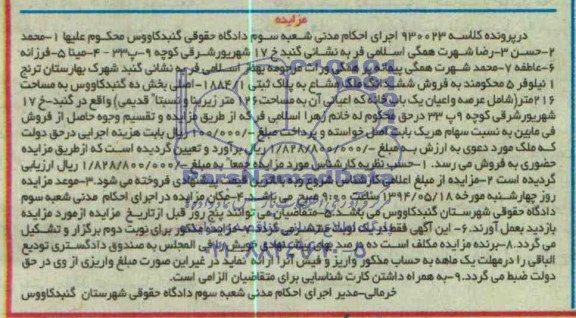 مزایده
درپرونده کلاسه ۹۳۰۰۲۳ اجرای احکام مدنی شعبه سوم دادگاه حقوقی گنبدکاووس محکوم علیها ۱-محمد
۲-حسن ۳-رضا شهرت همگی اسلامی فر به نشانی گنبد خ ۱۷ شهریورشرقی کوچه ۹-پ۳۳ - ۴-مینا ۵-فرزانه
۶-عاطفه ۷-محمد شهرت همگی پیمانه فر همگی وراث مرحومه بهناز اسلامی فر به نشانی گنبد شهرک بهارستان ترنج
۱ نیلوفر ۵ محکومند به فروش ششدانگ ملک مشاع به پلاک ثبتی ۱۸۸۴۱-اصلی بخش ده گنبدکاووس به مساحت
۲۱۶متر(شامل عرصه واعیان یک باب خانه که اعیانی آن به مساحت ۱۲۶ متر زیربنا و نسبتا" قدیمی) واقع در گنبد-خ ۱۷
شهریورشرقی کوچه ۹ پ ۳۳ درحق محکوم له خانم زهرا اسلامی فر که از طریق مزایده و تقسیم وجوه حاصل از فروش
فی مابین به نسبت سهام هریک بابت اصل خواسته و پرداخت مبلغ ریال بابت هزینه اجرایی درحق دولت
که ملک مورد دعوی به ارزش به مبلغ ۱/۸۲۸/۸۰۰/۰۰۰ ریال برآورد و تعیین گردیده است که ازطریق مزایده
حضوری به فروش می رسد. ۱-حسب نظریه کارشناس مورد مزایده جمعا" به مبلغ ۱/۸۲۸/۸۰۰/۰۰۰ ریال ارزیابی
گردیده است ۲-مزایده از مبلغ اعلامی کارشناس شروع وبه بالاترین قیمت پیشنهادی فروخته می شود.۳-موعد مزایده
روز چهارشنبه مورخه ۱۳۹۴/۰۵/۱۸ ساعت ۹:۰۰ صبح می باشد ۴-مکان مزایده دراجرای احکام مدنی شعبه سوم
دادگاه حقوقی شهرستان گنبدکاووس می باشد.۵-متقاضیان می توانند پنج روز قبل ازتاریخ مزایده از مورد مزایده
بازدید بعمل آورند.۶- این آگهی فقط یک نوبت منتشر می گردد ۷-مزایده مذکور برای نوبت دوم برگزار و تشکیل
می گردد.۸-برنده مزایده مکلف است ده درصد بهای پیشنهادی خویش را فی المجلس به صندوق دادگستری تودیع
الباقی را درمهلت یک ماهه به حساب مذکور واریز و فیش آنرا ارائه نماید در غیراین صورت مبلغ واریزی از وی در حق
دولت ضبط می گردد.۹-به همراه داشتن کارت شناسایی برای متقاضیان الزامی است.
خرمالی-مدیر اجرای احکام مدنی شعبه سوم دادگاه حقوقی شهرستان گنبدکاووس